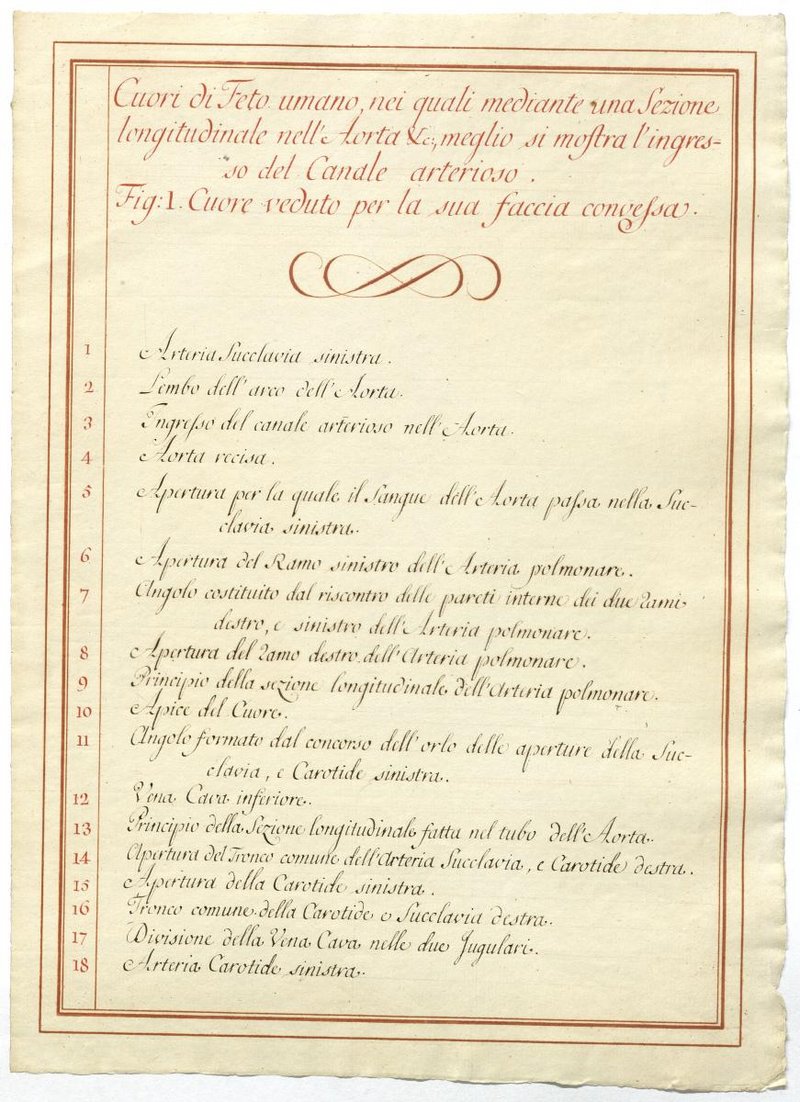 Cuori di Feto umano, nei quali mediante una Sezione
longitudinale nell'Aorta &c:, meglio si mostra l'ingres-
so del Canale arterioso.
Fig: 1. Cuore veduto per la sua faccia convessa.
1 Arteria Succlavia sinistra.
2 Lembo dell'arco dell'Aorta.
3 Ingresso del canale arterioso nell'Aorta.
4 Aorta recisa.
5 Apertura per la quale il Sangue dell'Aorta passa nella Suc-
clavia sinistra.
6 Apertura del Ramo sinistro dell'Arteria polmonare.
7 Angolo costituito dal riscontro delle pareti interne dei due Rami
destro, e sinistro dell'Arteria polmonare.
8 Apertura del Ramo destro dell'Arteria polmonare.
9 Principio della sezione longitudinale dell'Arteria polmonare.
10 Apice del Cuore.
11 Angolo formato dal concorso dell'orlo delle aperture della Suc-
clavia, e Carotide sinistra.
12 Vena Cava inferiore.
13 Principio della Sezione longitudinale fatta nel tubo dell'Aorta.
14 Apertura del Tronco comune dell'Arteria Succlavia, e Carotide destra.
15 Apertura della Carotide sinistra.
16 Tronco comune della Carotide e Succlavia destra.
17 Divisione della Vena Cava nelle due Jugulari.
18 Arteria Carotide sinistra.